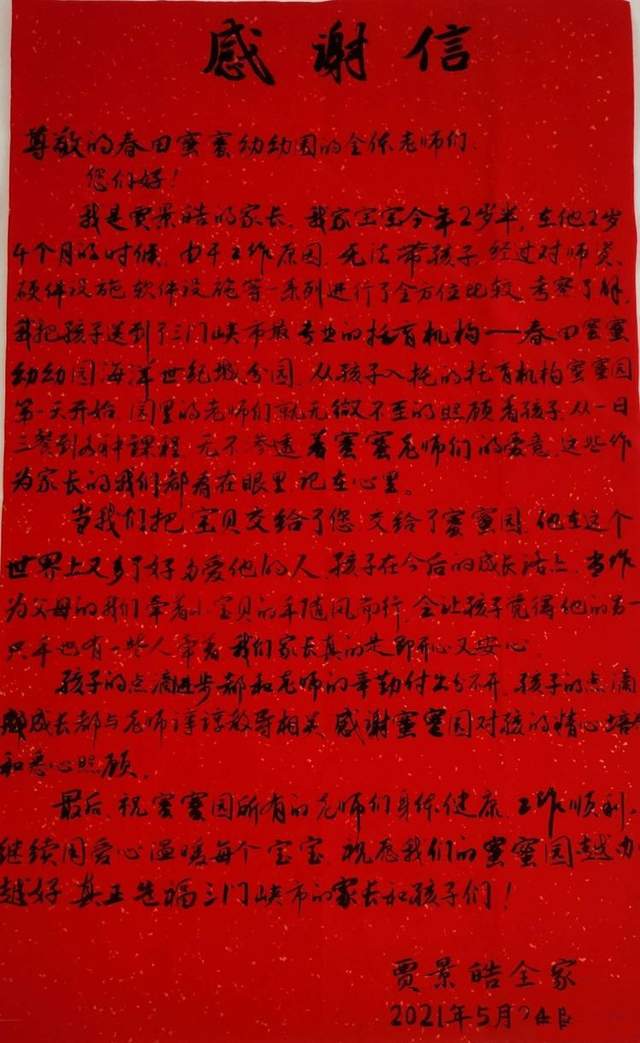 感谢信
尊敬的春田蜜蜜幼幼园的全体老师们.
您们好!
我是贾景皓的家长,我家宝宝今年2岁半,在他2岁
4个月的时候,由于工作原因,无法带孩子,经过对师资,
硬件设施,软件设施等一系列进行了全方位比较,考察了解,
我把孩子送到了三门峡市最专业的托育机构——春田蜜蜜
幼幼园海洋世纪城分园,从孩子入托的托育机构蜜蜜园
第一天开始,园里的老师们就无微不至的照顾着孩子,从一日
三餐到各种课程,无不渗透着蜜蜜老师们的爱意,这些作
为家长的我们都看在眼里,记在心里。
当我们把宝贝交给了您,交给了蜜蜜园,他在这个
世界上又多了好多爱他的人,孩子在今后的成长路上,当作
为父母的我们牵着小宝贝的手随风而行,会让孩子觉得他的另一
只手也有一些人牵着,我们家长真的是即开心又安心.
孩子的点滴进步都和老师的辛勤付出分不开,孩子的点滴
成长都与老师谆谆教导相关,感谢蜜蜜园对孩的精心培
和悉心照顾.
最后,祝蜜蜜园所有的老师们身体健康,工作顺利,
继续用爱心温暖每个宝宝,祝愿我们的蜜蜜园越办
越好,真正造福三门峡市的家长和孩子们!
贾景皓全家
2021年5月24日